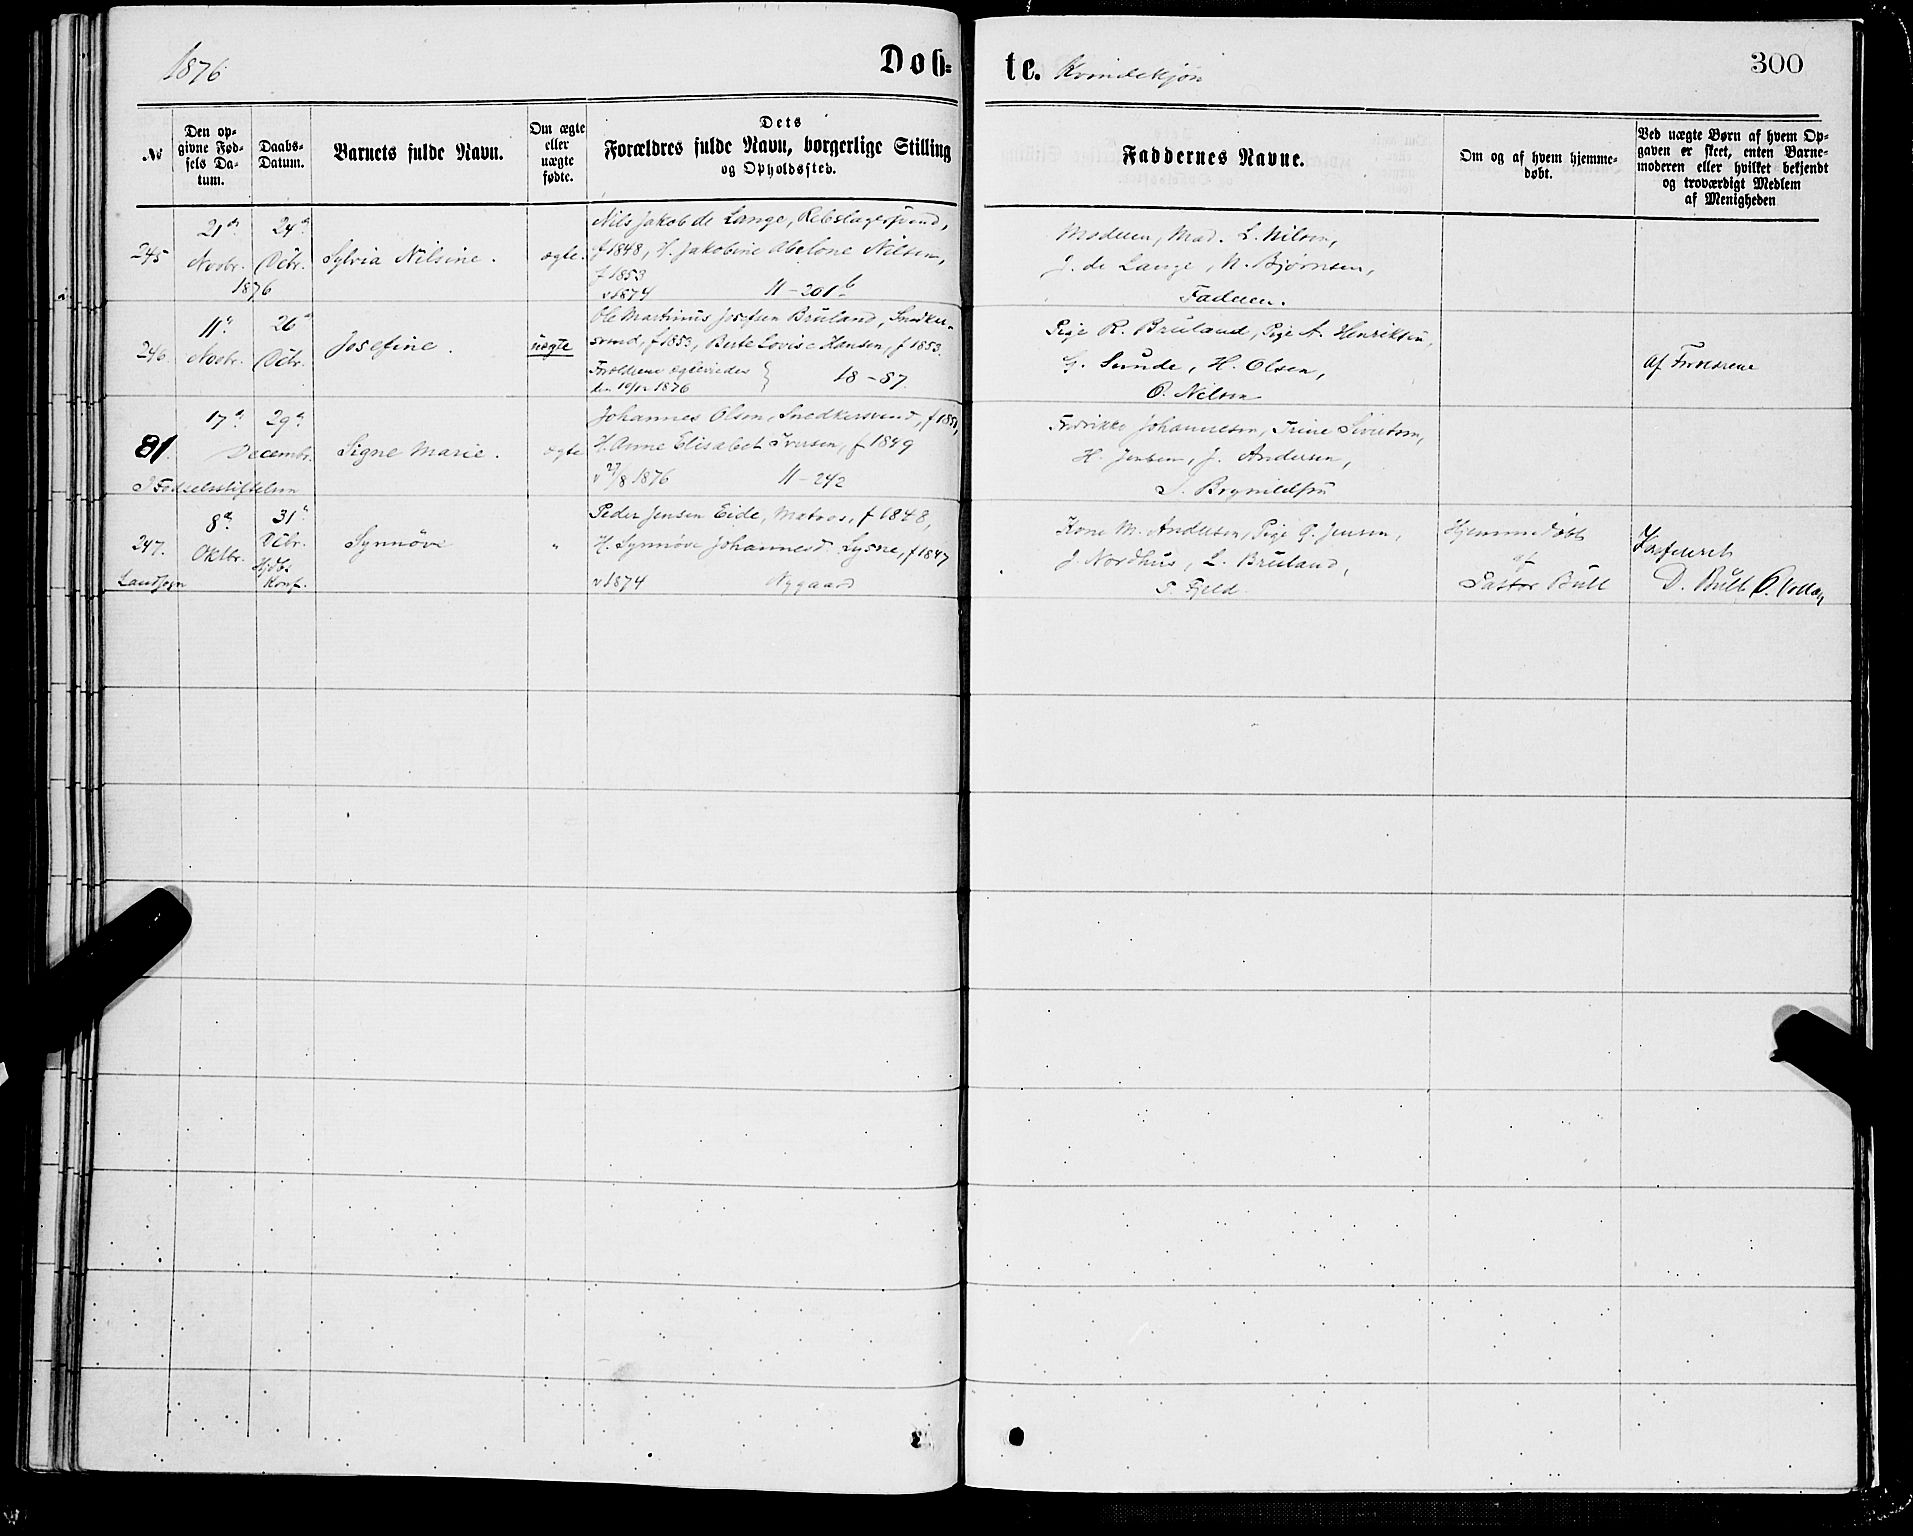 1876
Døb-
te. Kvindekjøn
300
№
Den op-
givne Fød-
sels Da-
tum.
Daabs-
Datum.
Barnets fulde Navn.
Om ægte
eller
uægte
fødte.
Dets
Forældres fulde Navn, borgerlige Stilling
og Opholdssted.
Faddernes Navne.
Om og af hvem hjemme-
døbt.
Ved uægte Børn af hvem Op-
gaven er skeet, enten Barne-
moderen eller hvilket bekjendt
og troværdigt Medlem
af Menigheden
245
21de
Novbr.
24de
Dcbr.
1876
Sylvia Nilsine.
ægte.
Nils Jakob de Lange, Rebslagersvend,
f 1848, H. Jakobine Abelone Nilsen,
f 1853
v 1874 11-201b
Moderen, Mad. L. Nilsen,
J. de Lange, N. Bjørnsen,
Faderen.
246.
11te
Novbr.
26de
Dcbr.
Josefine.
uægte
Ole Martinus Josefsen Bruland, Snedker-
svend, f 1853, Berte Lovise Hansen, f 1853.
Forældrene ægteviedes
den 10/12 1876 18-87
Pige R. Bruland, Pige A. Henriksen,
G. Sunde, H. Olsen,
O. Nilsen
Af Forældrene
81.
17de 29de
Decembr.
I Fødselsstiftelsen
Signe Marie.
ægte
Johannes Olsen, Snedkersvend, f 1851,
H. Anne Elisabet Iversen, f 1849
v 27/8 1876 11-242
Fredrikke Johannesen, Trine Sivertsen,
H. Jensen, J. Andersen,
S. Brynildsen
247.
Landsogn
8de
Oktbr.
31te
Dcbr.
Hjdbs
Konf.
Synnøve
"
Peder Jensen Eide, Matros, f 1848,
H. Synnøve Johannesd. Lysne, f 1847
v 1874 Nygaard
Kone M. Andersen, Pige G. Jensen,
J. Nordhus, L. Bruland,
T. Fjeld.
Hjemmedøbt
af
Pastor Bull
Konfereret
D. Bull